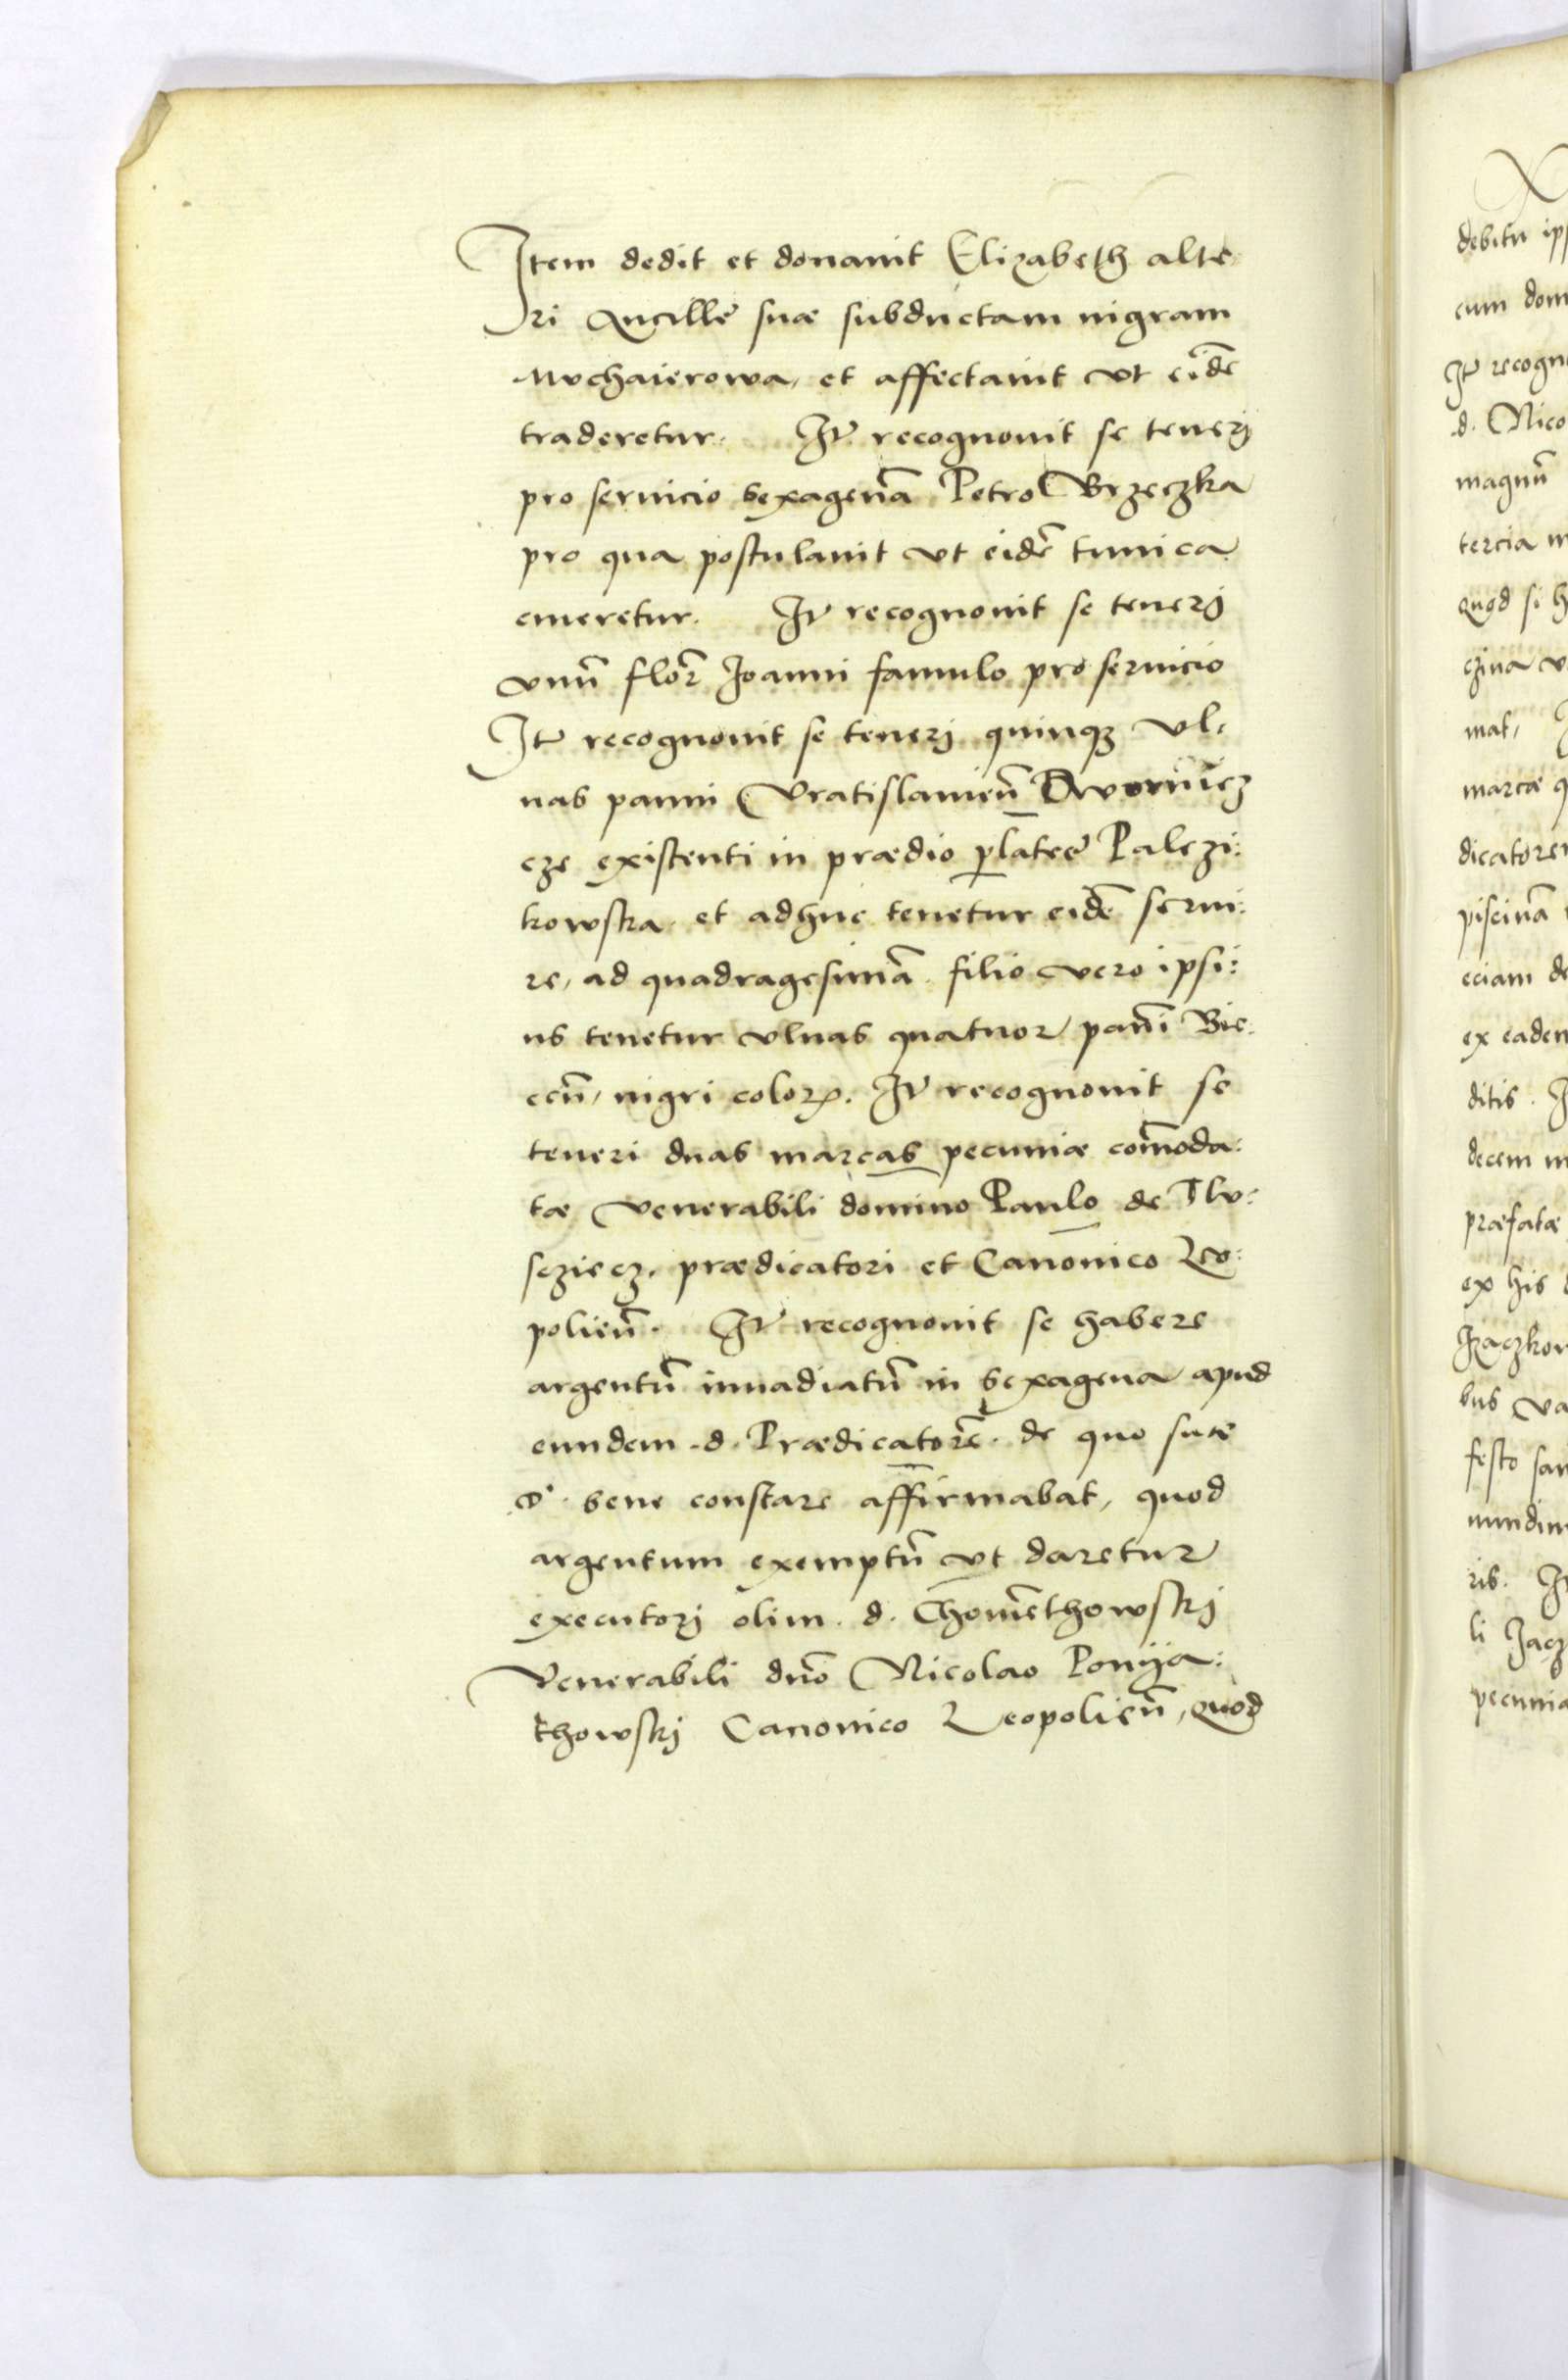 Item dedit et donauit Elizabeth alte
ri Ancille suæ subductam nigram
Mvchaierowa, et affectauit vt eidē
traderetur. Itē recognouit se tenerj
pro seruicio sexagenā Petro Brzeczka
pro qua postulauit vt eidē tunica
emeretur. Itē recognouit se tenerj
vnū florē Joanni famulo pro seruicio
Itē recognouit se tenerj quinqȝ vl-
nas panni Vratislauieñ Dwornicz
cze existenti in prædio platee Palczi:
kowska et adhuc tenetur eidē serui:
re, ad quadragesimā filio vero ipsi:
us tenetur vlnas quatuor panī Bie-
ceñ, nigri color. Itē recognouit se
teneri duas marcas pecuniæ com̄oda:
tæ Venerabili domino Paulo de Tlv:
szciecz. prædicatori et Canonico Leo:
polieñ. Itē recognouit se habere
argentū inuadiatū in sexagena apud
eundem .d. Prædicatorē. de quo suæ
d. bene constare affirmabat, quod
argentum exemptū vt daretur
executorj olim .d. Chomēthowskj
Venerabili dño Nicolao Ponya:
thowskj Canonico Leopolieñ, quod
debitu
cum dom
Itē recogn
.d. Nico
magnū
tercia
quod si
czina
mat,
marcæ
dicatore
piscinā
eciam de
ex eadem
ditis.
decem
præfatæ
ex his
bus
festo
nundin
ris.
li
pecunia